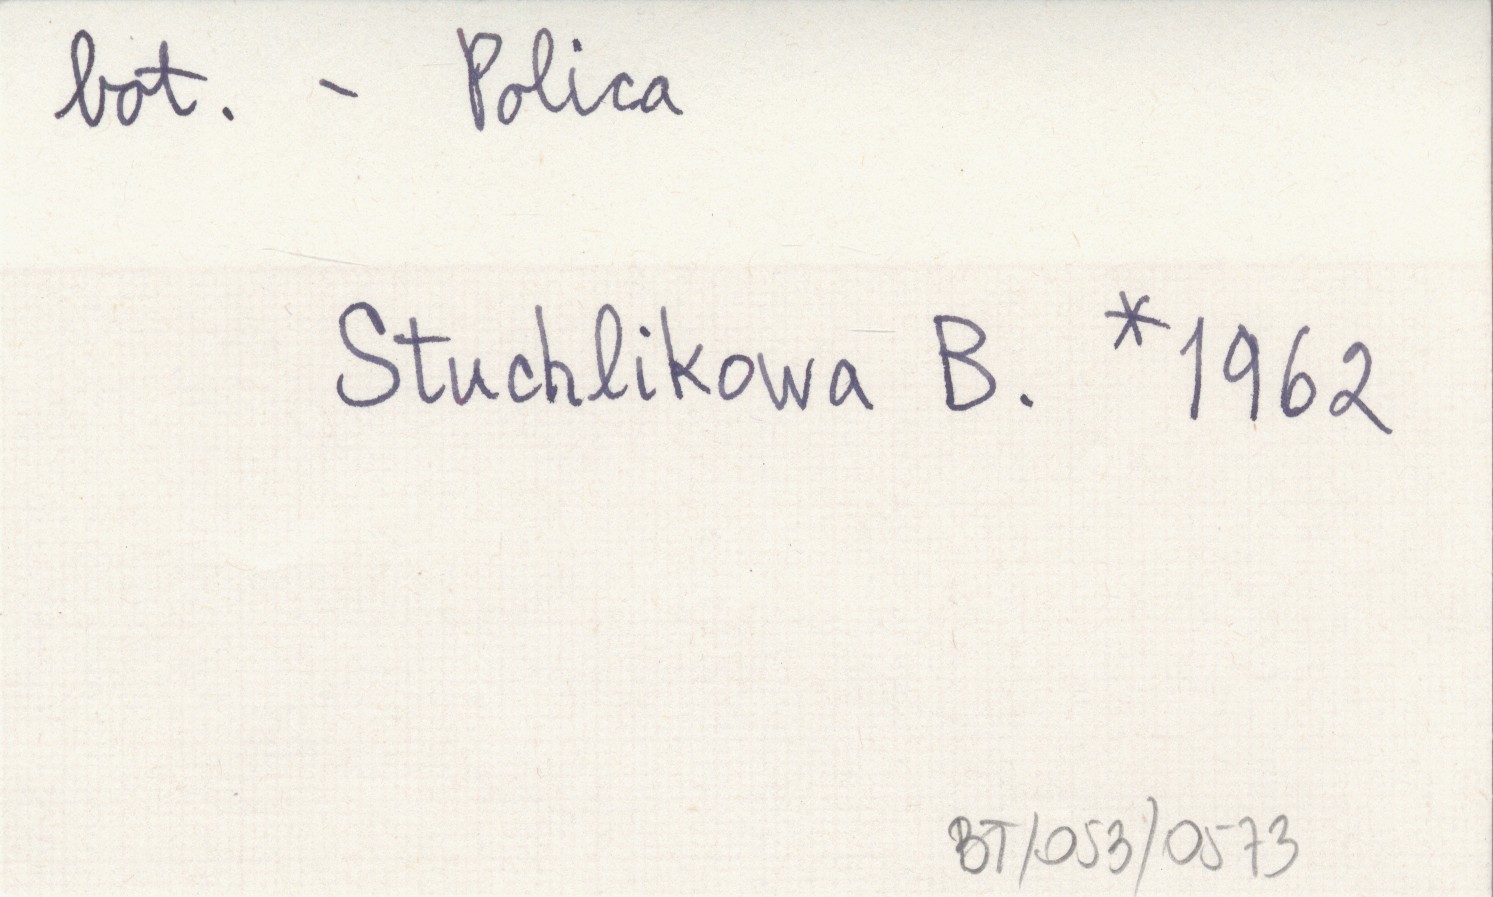 bot. - Polica
Stuchlikowa B. *1962
BT/053/0573